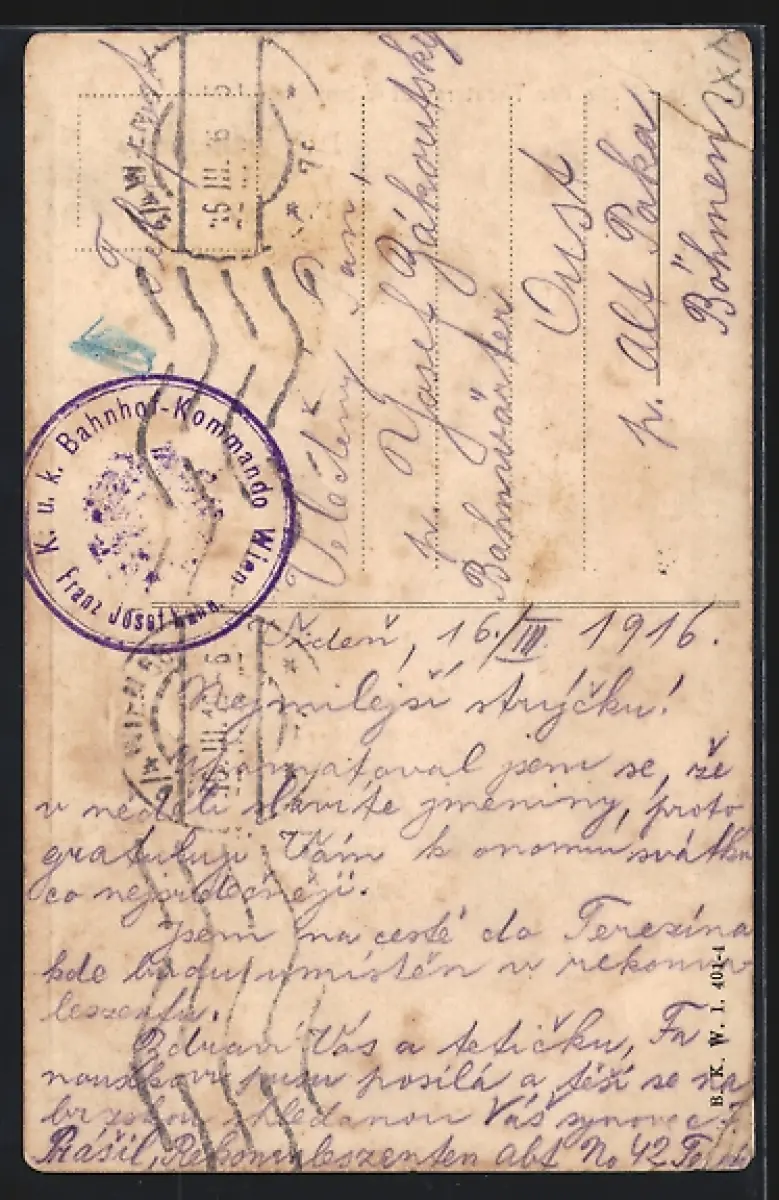 Feldpost
26.III.16
K. u. k. Bahnhof-Kommando Wien
Franz Josef bahn
Veletěný pan
p. Josef Zákoutský
Bahnwärter
Oust
p. Alt Paka
Böhmen
Vídeň, 16./III. 1916.
Nejmilejší strýčku!
Upamatoval jsem se, že
v neděli slavíte jmeniny, proto
gratuluji Vám k onomu svátku
co nejsrdečněji.
Jsem na cestě do Terezína
kde budu umístěn v rekonva-
leszentu.
Zdraví Vás a tetičku,
pusu posílá a těší se na
brzskou shledanou Váš synovec J.
Prášil, Rekonvaleszenten abt No 42
B. K. W. I. 401-4